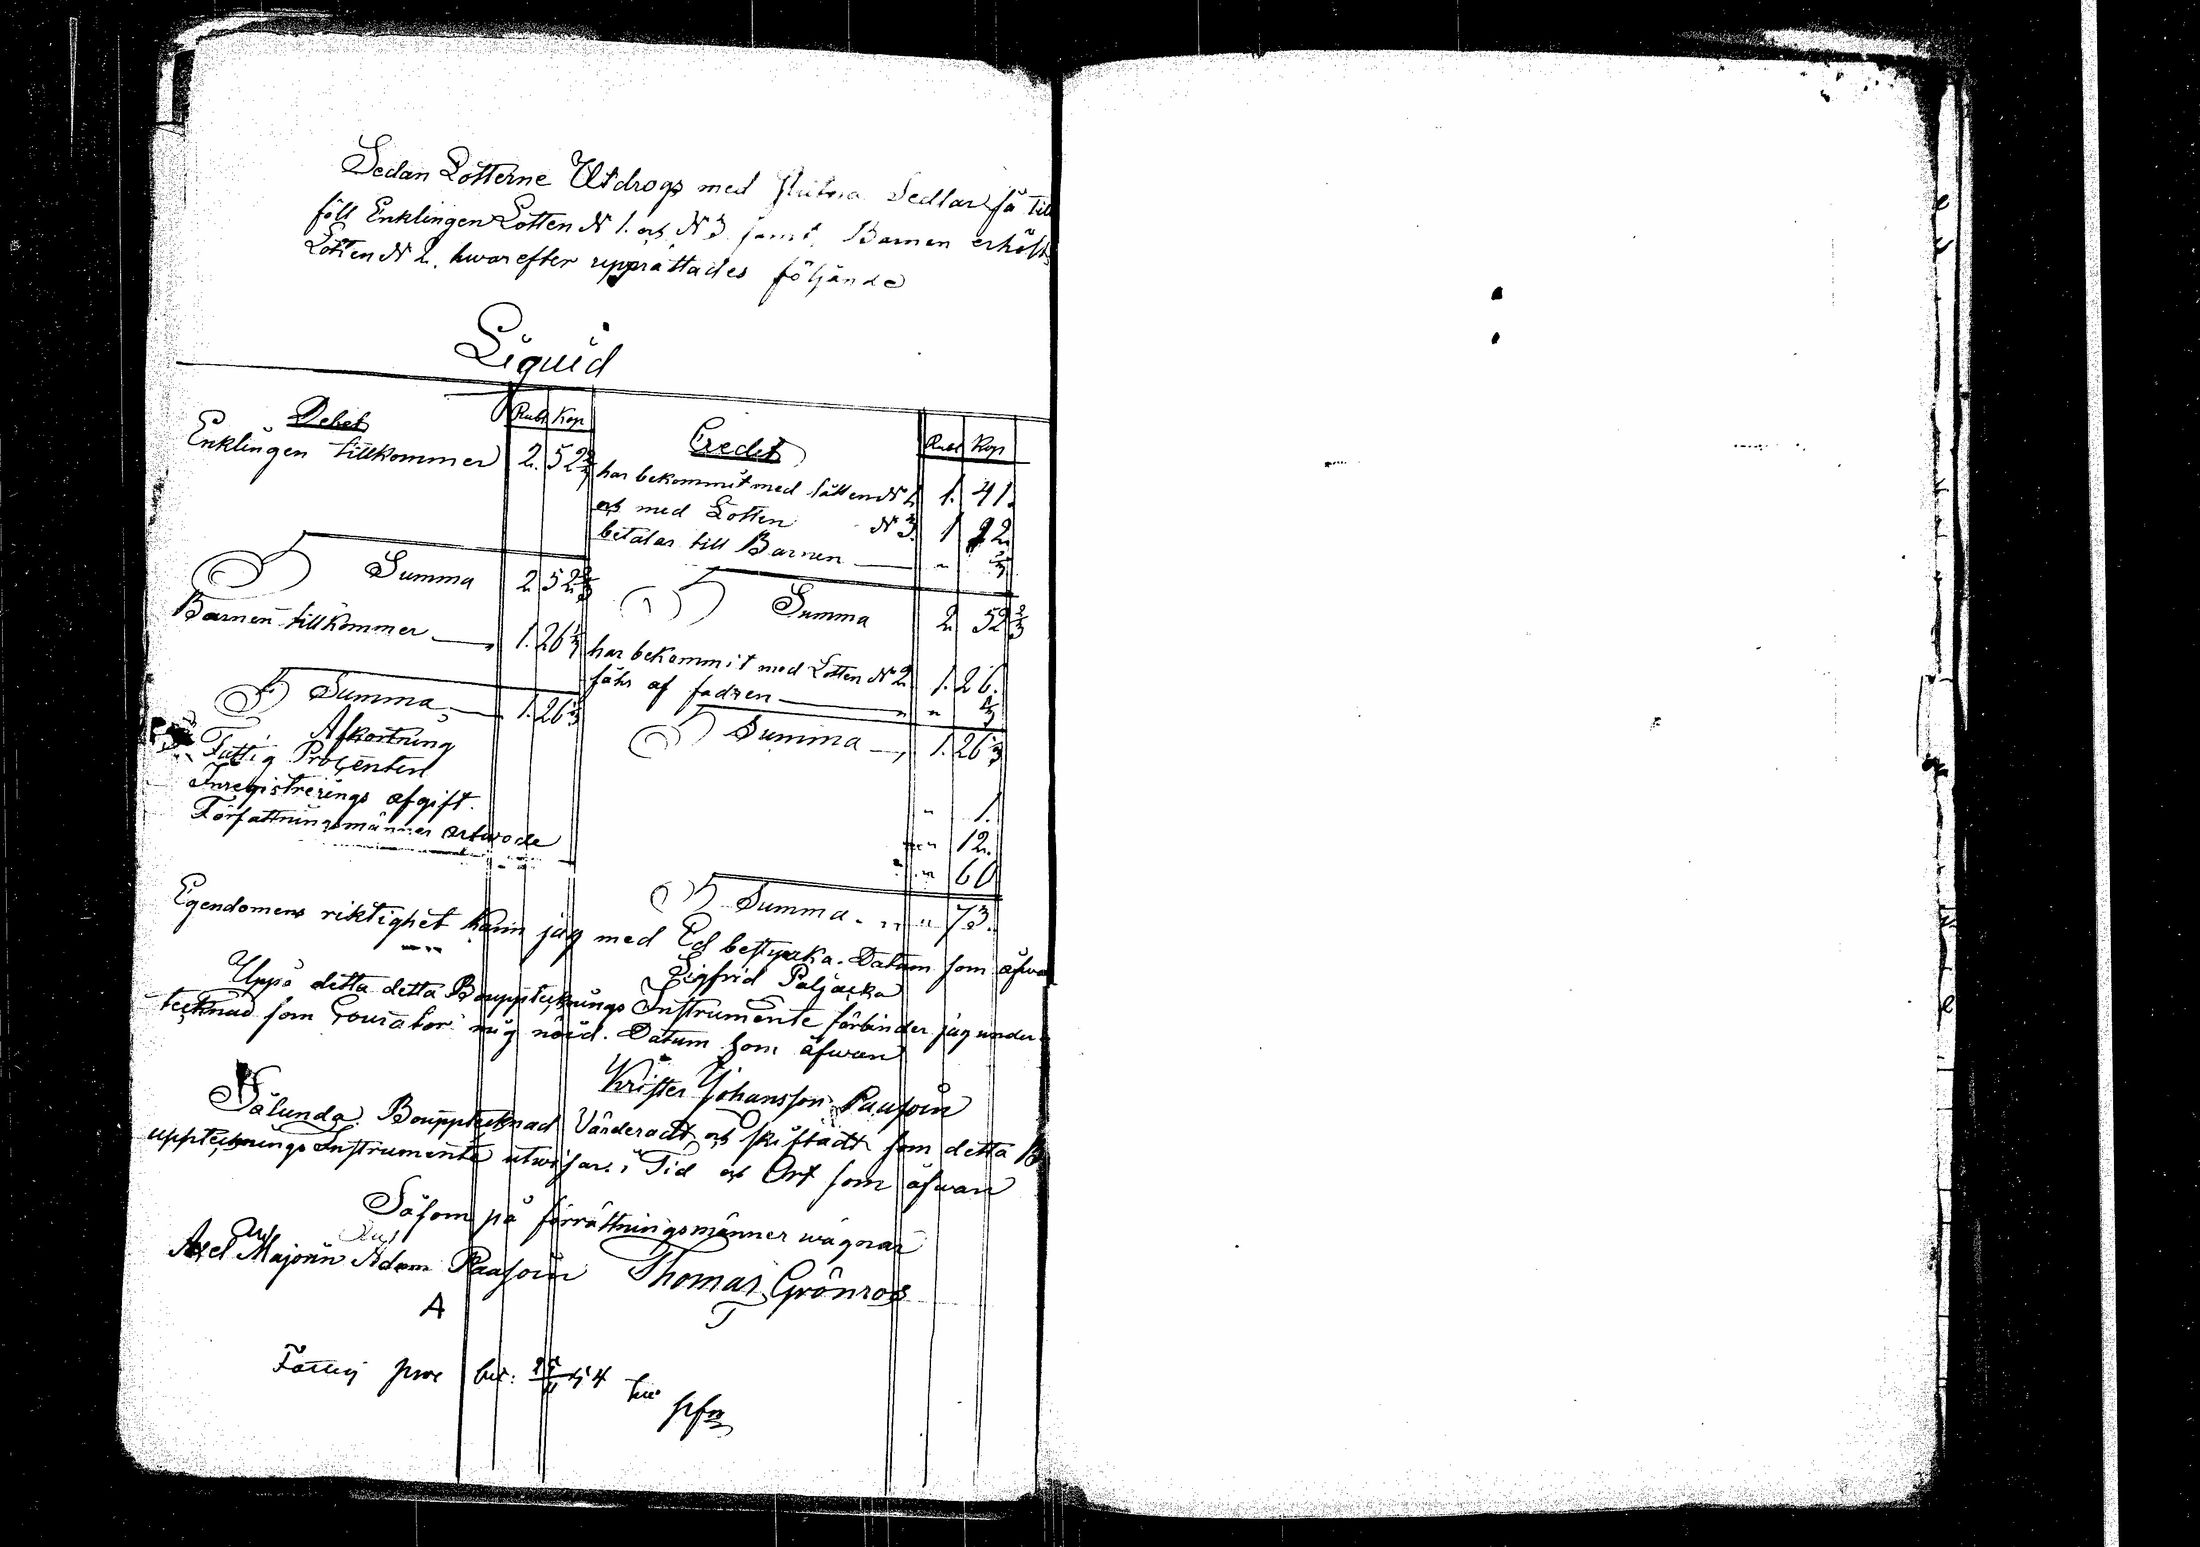 Sedan Lotterne Utdrogs med Slutna Sedlar så till
föll Enklingen Lotten N 1. och N 3 samt Barnen erhölt
Lotten N 2. hwarefter upprättades följande
Liquid
Debet Rubl Kop Credet Rubl Kop
Enklingen tillkommer 2. 52 2/3 har bekommit med lotten N 1. 1. 41.
och med Lotten N 3. 1 12.
betalar till Barnen " 1/3
Summa 2 52 2/3 Summa 2. 52 2/3
Barnen tillkommer 1. 26 1/3 har bekommit med Lotten N 2 1. 26.
fåhr af fadren " " 1/3
Summa 1. 26 1/3 Summa 1. 26 1/3
Afkortning
Fattig Procenten " 1.
Inregistrerings afgift. " 12.
Författningsmänner artwode " 60
Summa " 73.
Egendomens riktighet kann jag med Ed bestyrka. Datum som åfwan
Sigfrid Paljacka
Uppå detta detta Boupptecknings Instrumente förbinder jag under-
tecknad som Courator mig nöid. Datum som åfwan
Krister Johansson Paasoin
Sålunda Boupptecknad Värderadt och skiftadt som detta B
uppteknings Instrumente utwisar. i Tid och Ort som åfwan
Såsom på förrättningsmänner wägnar
Axel Majoin Adam Paasoin Thomas Grönros
A T
Fattig proc